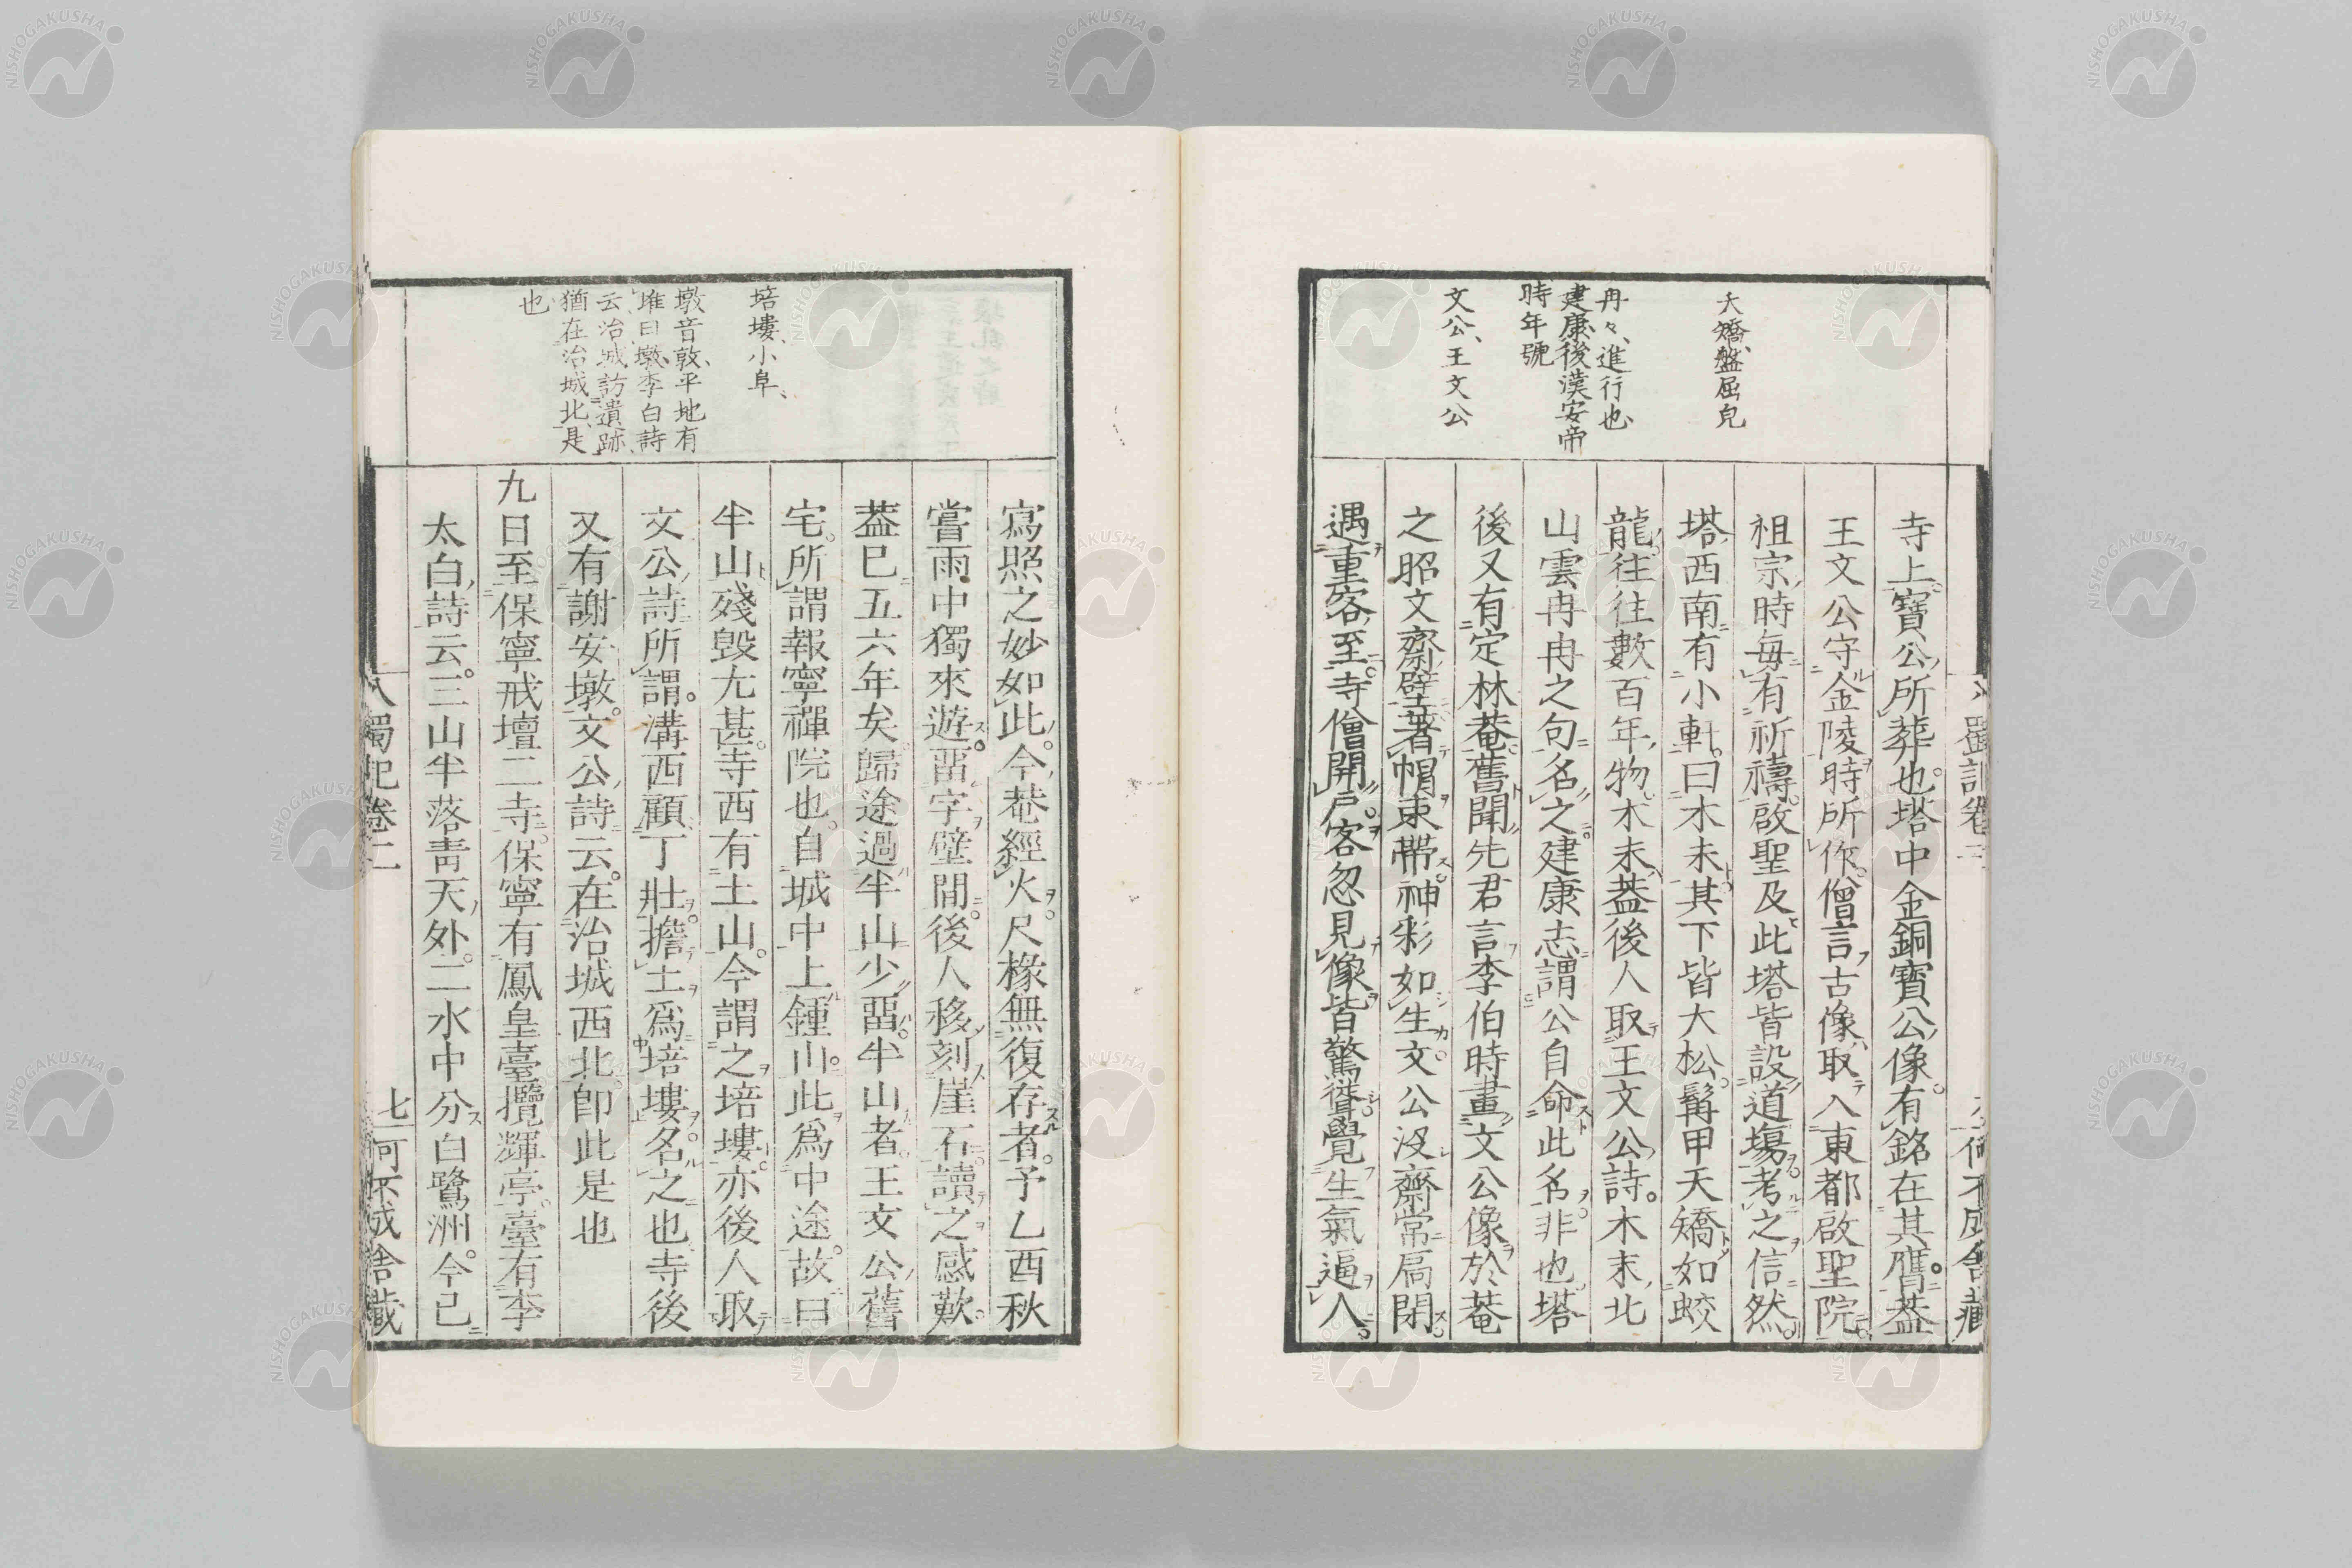 夭矯、盤屈皃
冉々、進行也
建康、後漢安帝
時年號
文公、王文公
寺上寶公所葬也塔中金銅寶公像有銘在其膺葢
王文公守金陵時所作僧言古像取入東都啟聖院
祖宗時毎有祈禱啟聖及此塔皆設道塲考之信然
塔西南有小軒曰木末其下皆大松髯甲夭矯如蛟
龍往往數百年物木末葢後人取王文公詩木末北
山雲冉冉之句名之建康志謂公自命此名非也塔
後又有定林菴舊聞先君言李伯時畫文公像於菴
之昭文齋壁著帽束帶神彩如生文公沒齋常扃閉
遇重客至寺僧開戸客忽見像皆驚聳覺生氣逼人
培塿、小阜、
墩音敦、平地有
堆曰墩、李白詩
云、冶城訪遺跡、
猶在冶城北、是
也
寫照之妙如此今菴經火尺椽無復存者予乙酉秋
嘗雨中獨來遊畱字壁間後人移刻崖石讀之感歎
葢巳五六年矣歸途過半山少畱半山者王文公舊
宅所謂報寧禪院也自城中上鍾山此爲中途故曰
半山殘毀尤甚寺西有土山今謂之培塿亦後人取
文公詩所謂溝西顧丁壯擔土爲培塿名之也寺後
又有謝安墩文公詩云在冶城西北卽此是也
九日至保寧戒壇二寺保寧有鳳皇臺攬輝亭臺有李
太白詩云三山半落靑天外二水中分白鷺洲今已
蜀記卷二
七
何不成舍藏
NISHOGAKUSHA